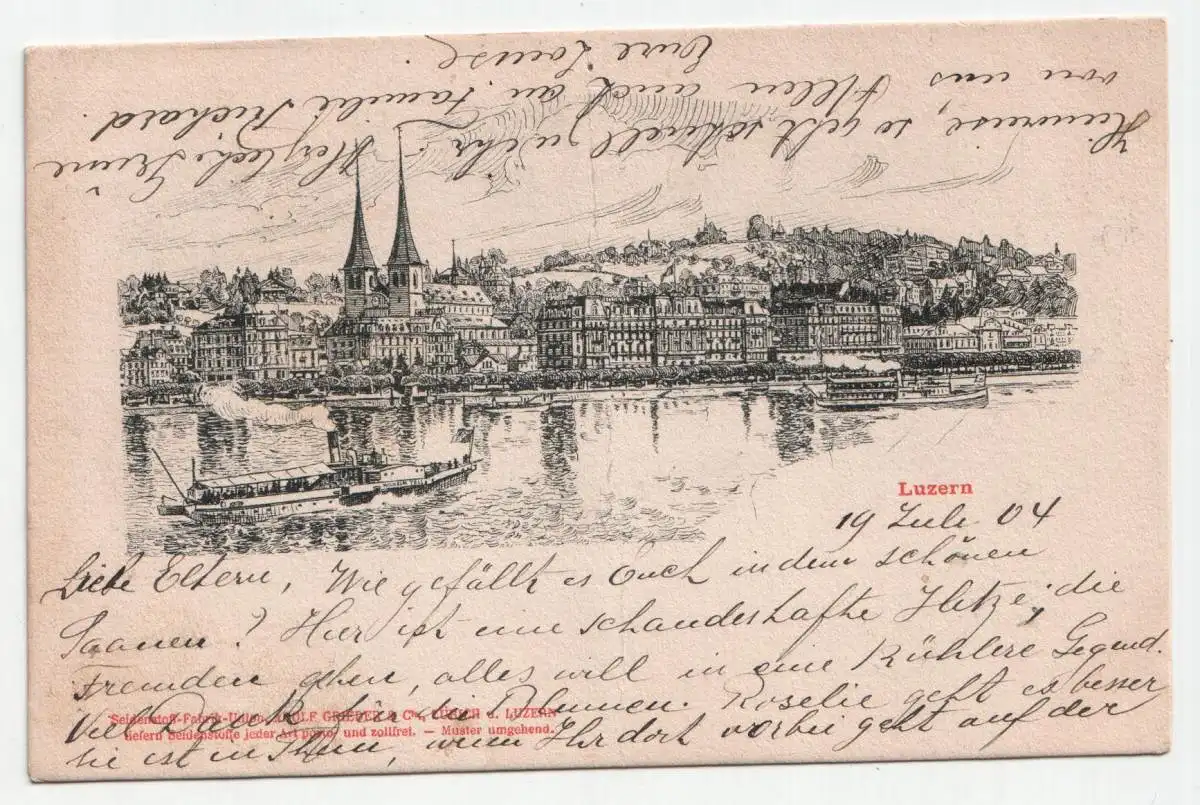 Luzern
19 Juli 04
Liebe Eltern, Wie gefällt es Euch in dem schönen
Saanen? Hier ist eine schauderhafte Hitze, die
Fremden gehen, alles will in eine Kühlere Gegend.
für die Blumen. Roselie geht es besser
sie ist in Thun, wenn Ihr dort vorbei geht auf der
Seidenstoff-Fabrik-Union, ADOLF GRIEDER & Cie, ZÜRICH u. LUZERN
liefern Seidenstoffe jeder Art porto- und zollfrei. — Muster umgehend.
Heimreise, so geht schnell zu ihr. Herzliche Grüsse
von uns Allen auch an Familie Richard
Eure Louise